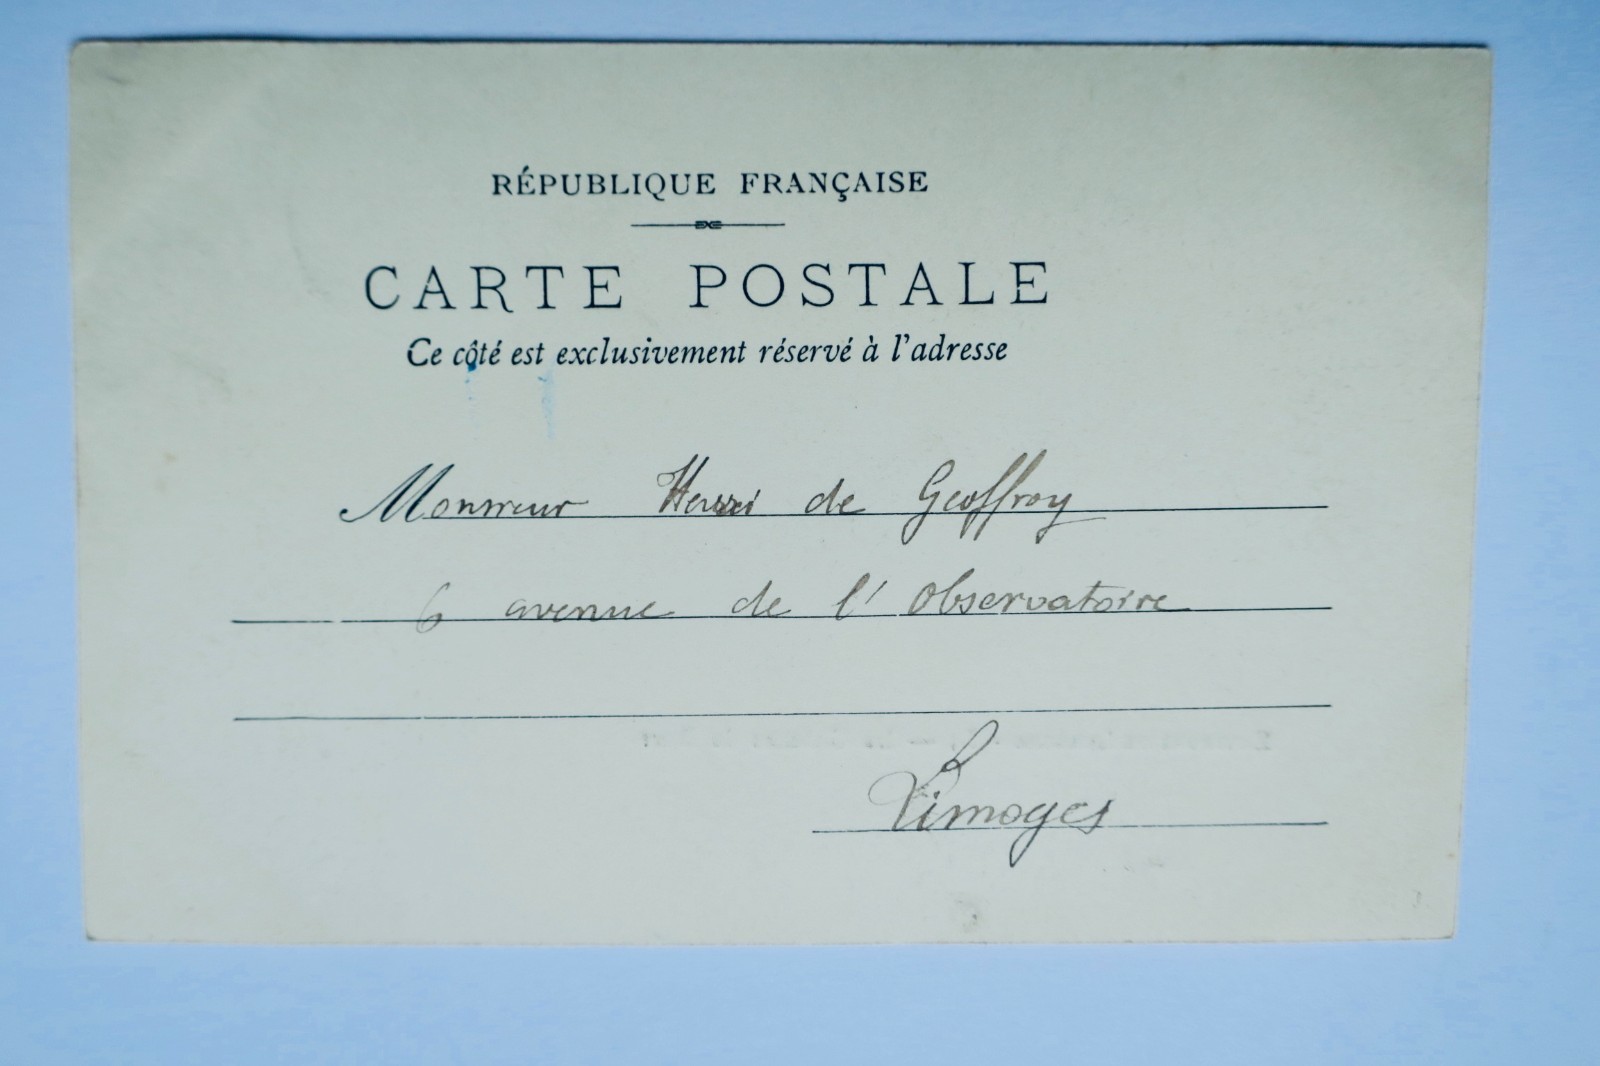 RÉPUBLIQUE FRANÇAISE
CARTE POSTALE
Ce côté est exclusivement réservé à l'adresse
Monsieur Henri de Geoffroy
6 avenue de l'Observatoire
Limoges